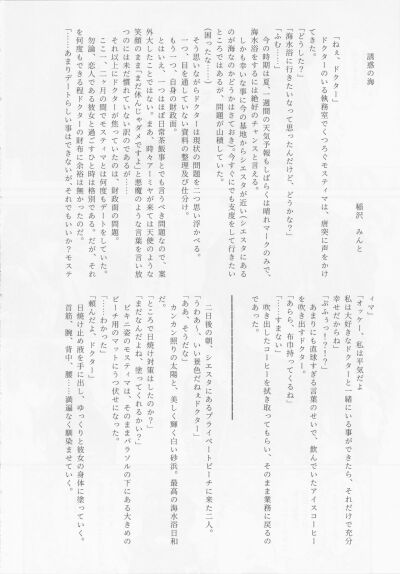 誘惑の海
稲沢 みんと
「ねぇ、ドクター」
ドクターのいる執務室でくつろぐモスティマは、唐突に声をかけ
てきた。
「どうした？」
「海水浴に行きたいなって思ったんだけど、どうかな？」
「ふむ……」
今の時期は夏、一週間の天気予報もしばらくは晴れマークのみで、
海水浴をするには絶好のチャンスと言える。
しかも幸いな事に今の基地からシエスタが近い（シエスタにある
のが海なのかどうかはさておき）。今すぐにでも支度をして行きたい
ところではあるが、問題が山積していた。
（困ったな……）
そう思いながらドクターは現状の問題を二つ思い浮かべる。
一つ、目を通していない資料の整理及び仕分け。
もう一つ、自身の財政面。
とはいえ、一つはほぼ日常茶飯事とでも言うべき問題なので、案
外大したことではない。まあ、時々アーミヤが来ては天使のような
笑顔のまま「まだ休んじゃダメですよ」と悪魔のような言葉を言い放
つのには未だ慣れていない訳なのであるが……
それ以上にドクターが焦っていたのは、財政面の問題。
ここ一、二ヶ月の間でモスティマとは何度もデートをしていた。
勿論、恋人である彼女と過ごすひと時は格別である。だが、それ
を何度もできる程ドクターの財布に余裕は無かったのだ。
「……あまりデートらしい事はできないが、それでもいいか？モステ
ィマ」
「オッケー、私は平気だよ
私は大好きなドクターと一緒にいる事ができたら、それだけで充分
幸せだからね」
「ぶふぅっ！？！？」
あまりにも直球すぎる言葉のせいで、飲んでいたアイスコーヒー
を吹き出すドクター。
「あらら、布巾持ってくるね」
「……すまない」
吹き出したコーヒーを拭き取ってもらい、そのまま業務に戻るの
であった。
二日後の朝、シエスタにあるプライベートビーチに来た二人。
「うわあー、いい景色だねぇドクター」
「ああ、そうだな」
カンカン照りの太陽と、美しく輝く白い砂浜。最高の海水浴日和
だ。
「ところで日焼け対策はしたのか？」
「まだなんだよね、塗ってくれるかい？」
ビキニ姿のモスティマは、そのままパラソルの下にある大きめの
ビーチ用のマットにうつ伏せになった。
「……わかった」
「頼んだよ、ドクター」
日焼け止め液を手に出し、ゆっくりと彼女の身体に塗っていく。
首筋、腕、背中、腰……満遍なく馴染ませていく。